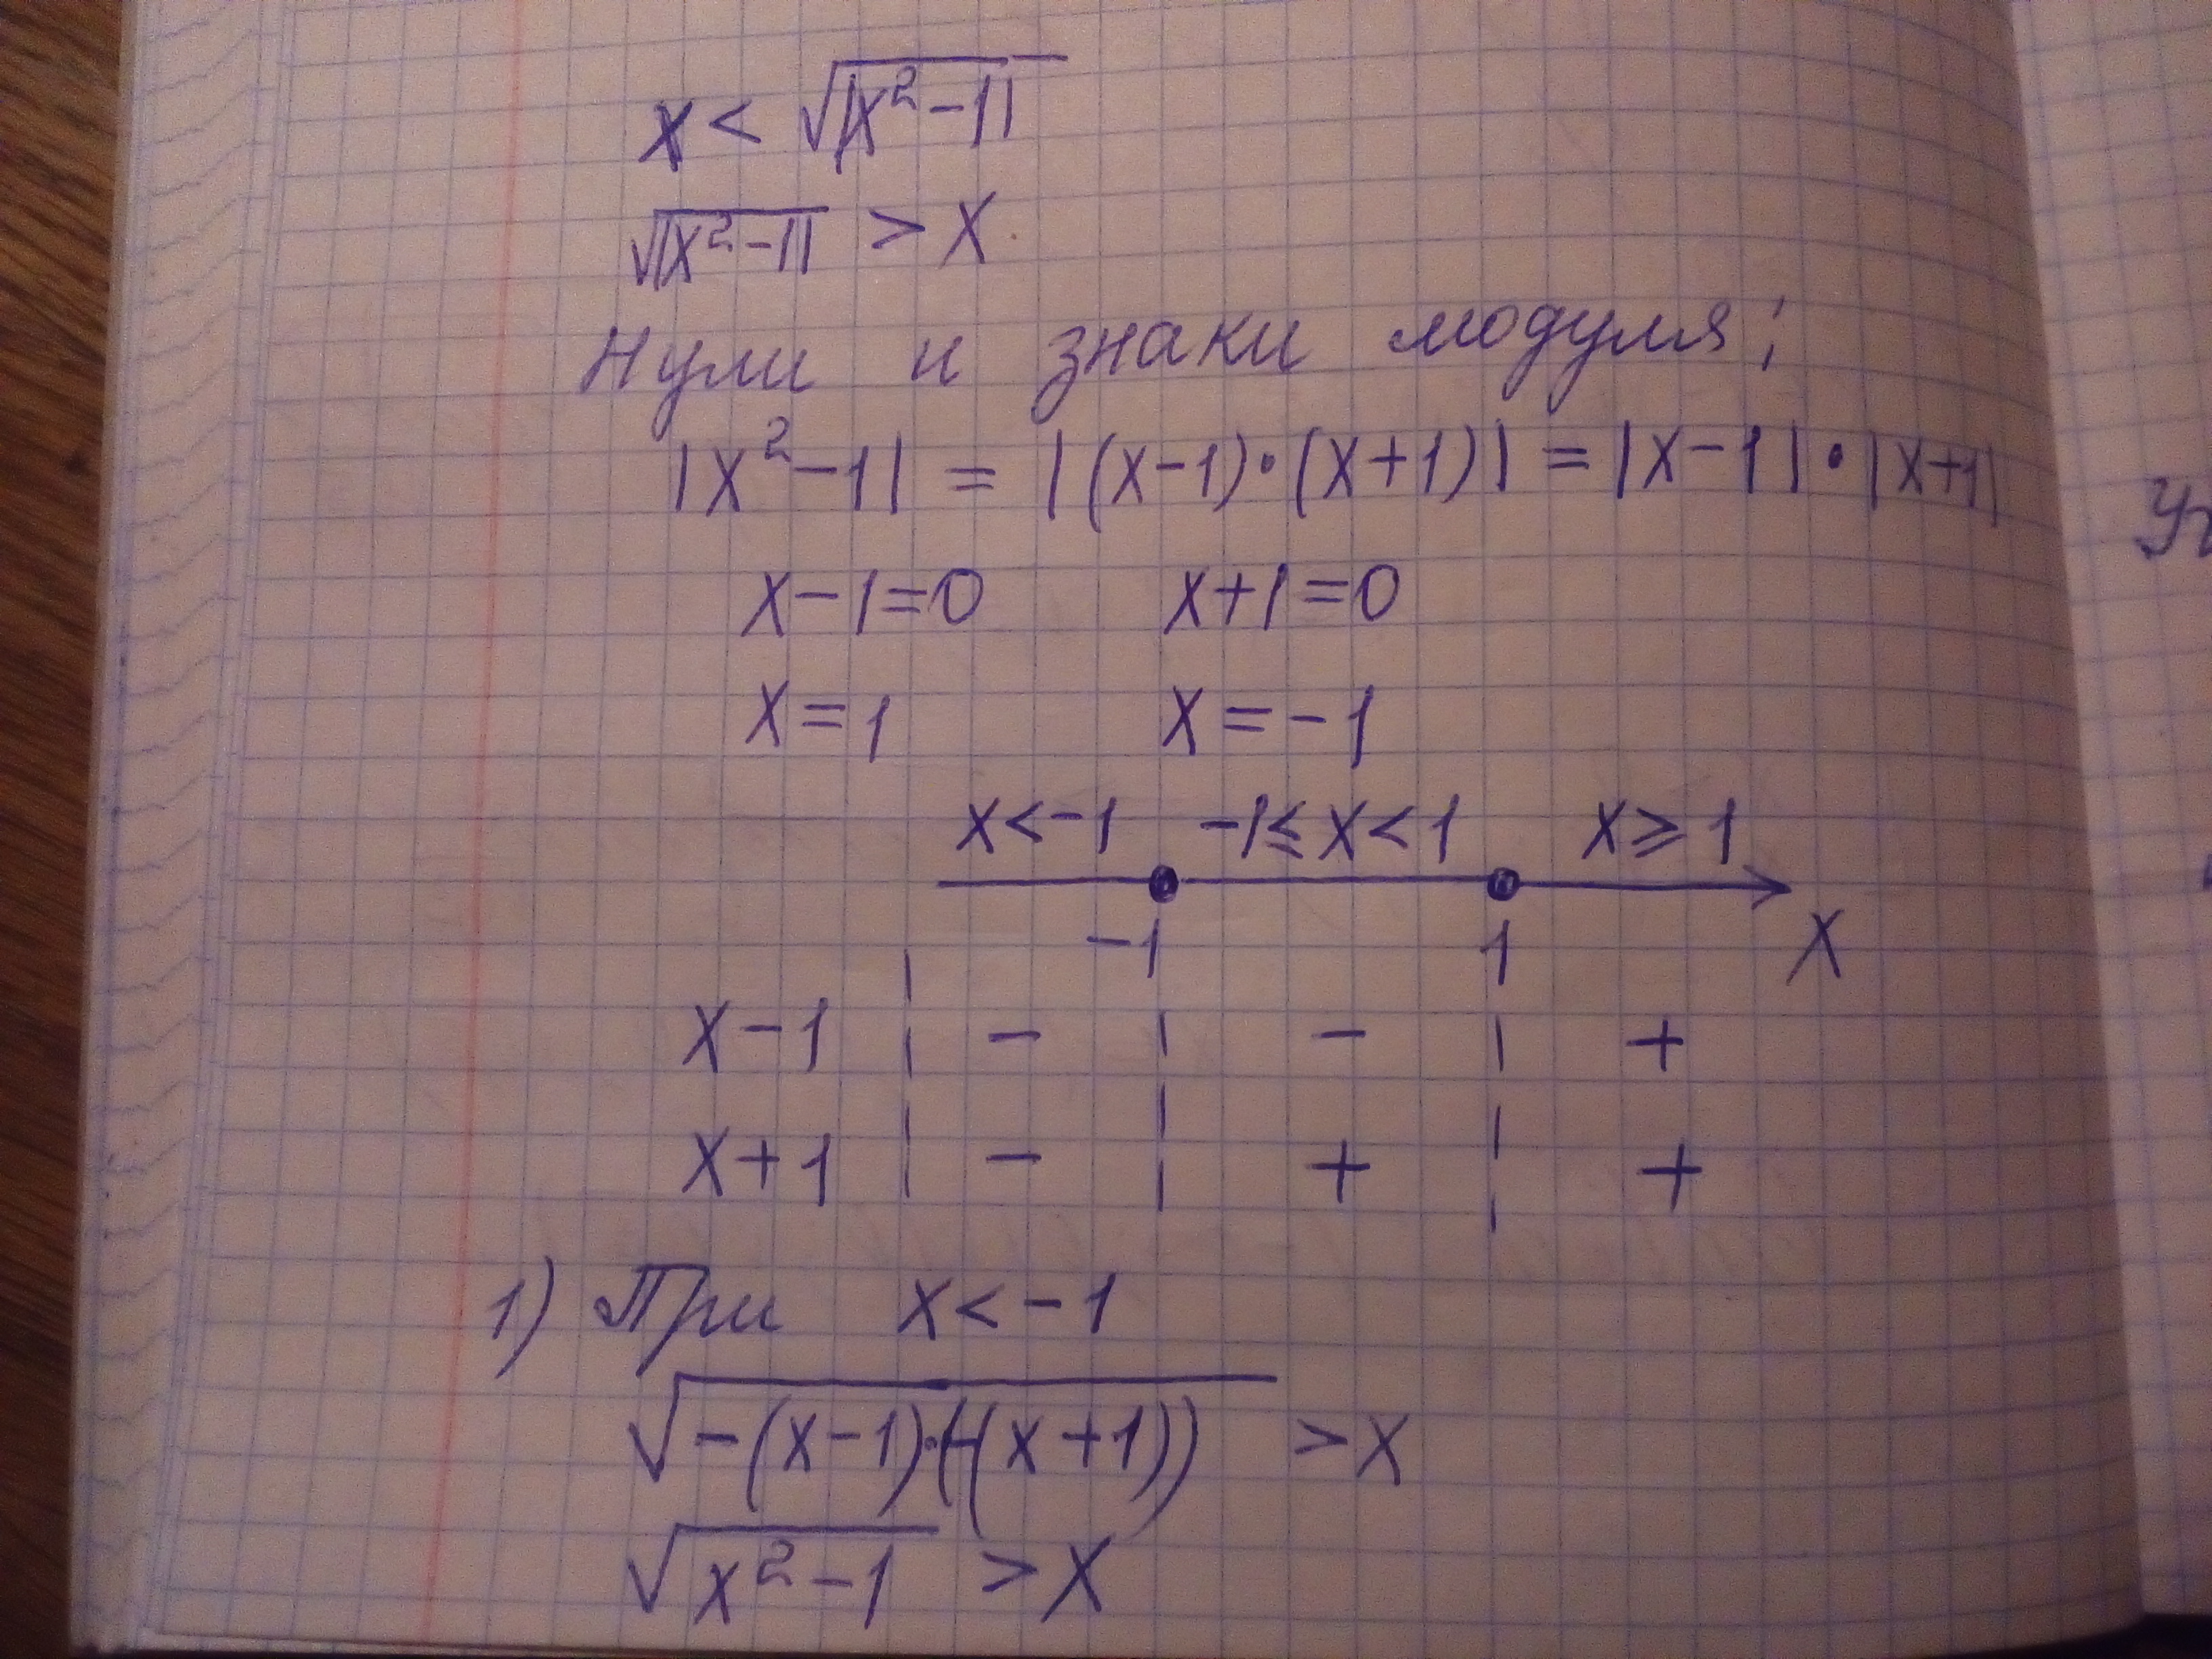 x < √|x²-1|
√|x²-1| > x
Нули и знаки модуля:
|x²-1| = |(x-1)·(x+1)| = |x-1|·|x+1|
x-1=0 x+1=0
x=1 x=-1
x<-1 -1≤x<1 x≥1
-1 1 x
x-1 - - +
x+1 - + +
1) При x<-1
√-(x-1)·(-(x+1)) >x
√x²-1 >x